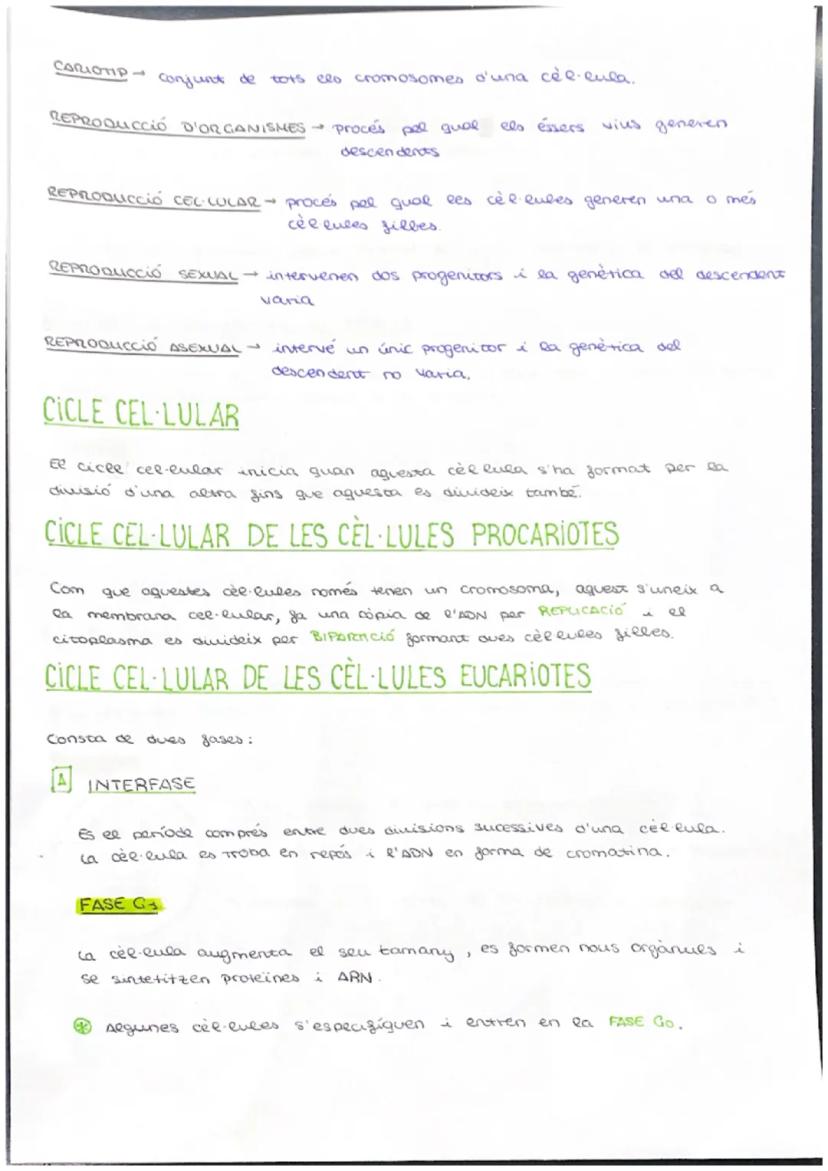 CARIOTIP → conjunt de tots els cromosomes d'una cèl·lula.
REPRODUCCIÓ D'ORGANISMES → procés pel qual els éssers vius generen
descendents
REPRODUCCIÓ CEL·LULAR → procés pel qual les cèl·lules generen una o més
cèl·lules filles.
REPRODUCCIÓ SEXUAL → intervenen dos progenitors i la genètica del descendent
varia
REPRODUCCIÓ ASEXUAL → intervé un únic progenitor i la genètica del
descendent no varia.
CICLE CEL·LULAR
El cicle cel·lular inicia quan aquesta cèl·lula s'ha format per la
divisió d'una altra fins que aquesta es divideix també.
CICLE CEL·LULAR DE LES CÈL·LULES PROCARIOTES
Com que aquestes cèl·lules només tenen un cromosoma, aquest s'uneix a
la membrana cel·lular, fa una còpia de l'ADN per REPLICACIÓ i el
citoplasma es divideix per BIPARTICIÓ formant dues cèl·lules filles.
CICLE CEL·LULAR DE LES CÈL·LULES EUCARIOTES
Consta de dues fases:
A INTERFASE
És el període comprés entre dues divisions sucessives d'una cèl·lula.
La cèl·lula es troba en repós i l'ADN en forma de cromatina.
FASE G1
La cèl·lula augmenta el seu tamany, es formen nous orgànuls i
se sintetitzen proteïnes i ARN.
* Algunes cèl·lules s'especifiquen i entren en la FASE G0.